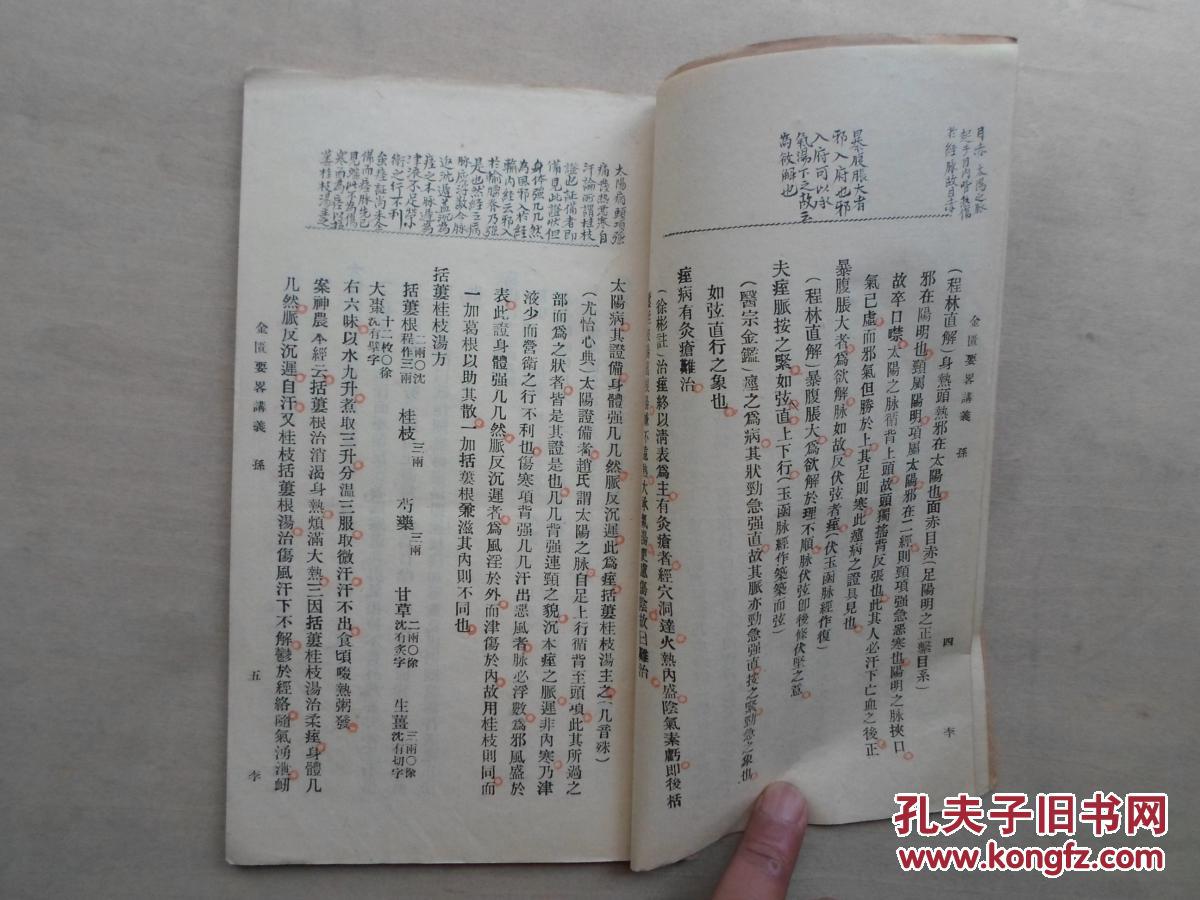 目赤 太陽之脉
起于目內眥
於經脉故目赤
暴腹脹大者
邪入府也邪
入府可以承
氣湯下之故云
為欲解也
金匱要畧講義 孫 四 李
(程林直解)身熱頭熱邪在太陽也面赤目赤(足陽明之正繫目系)
邪在陽明也頸屬陽明項屬太陽邪在二經則頸項强急惡寒也陽明之脉挾口
故卒口噤太陽之脉循背上頭故頭獨搖背反張也此其人必汗下亡血之後正
氣已虛而邪氣但勝於上其足則寒此痙病之證具見也
暴腹脹大者爲欲解脉如故反伏弦者痙(伏玉函脉經作復)
(程林直解)暴腹脹大爲欲解於理不順脉伏弦卽後條伏堅之意
夫痙脈按之緊如弦直上下行(玉函脉經作築築而弦)
(醫宗金鑑)痙之爲病其狀勁急强直故其脉亦勁急强直按之緊勁急之象也
如弦直行之象也
痙病有灸瘡難治
(徐彬註)治痙終以清表爲主有灸瘡者經穴洞達火熱內盛陰氣素虧卽後栝
大承氣湯更慮傷陰故曰難治
太陽病頭項强
痛發熱惡寒自
汗論所謂桂枝
證也証備者即
備見此證也但
身体强几几然
為風邪入於經
輸內經云邪入
於輸腰脊乃强
是也然經之病
脉應浮數今脉
反沉遲盖沉為
痙之本脉遲為
津液不足營
衛之行不利
太陽病其證備身體强几几然脈反沉遲此爲痙括蔞桂枝湯主之(几音殊)
(尤怡心典)太陽證備者趙氏謂太陽之脉自足上行循背至頭項此其所過之
部而爲之狀者皆是其證是也几几背强連頸之貌沉本痙之脈遲非內寒乃津
液少而營衛之行不利也傷寒項背强几几汗出惡風者脉必浮數爲邪風盛於
表此證身體强几几然脈反沉遲者爲風淫於外而津傷於內故用桂枝則同而
一加葛根以助其散一加括蔞根兼滋其內則不同也
括蔞桂枝湯方
括蔞根二兩〇沈程作三兩 桂枝三兩 芍藥三兩 甘草二兩〇徐沈有炙字 生薑三兩〇徐沈有切字
大棗十二枚〇徐沈有擘字
右六味以水九升煮取三升分溫三服取微汗汗不出食頃啜熱粥發
案神農本經云括蔞根治消渴身熱煩滿大熱三因括蔞桂枝湯治柔痙身體几
几然脈反沉遲自汗又桂枝括蔞根湯治傷風汗下不解鬱於經絡隨氣湧泄衄
金匱要畧講義 孫 五 李
孔夫子旧书网
www.kongfz.com